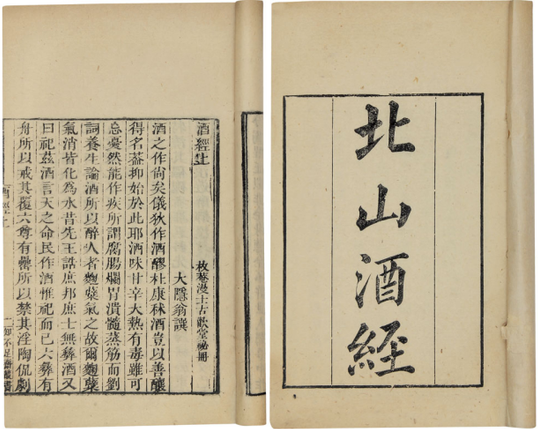 北山酒經
酒經上
枚菴漫士古歡堂祕冊
大隱翁譔
酒之作尚矣儀狄作酒醪杜康秫酒豈以善釀
得名葢抑始於此耶酒味甘辛大熱有毒雖可
忘憂然能作疾所謂腐腸爛胃潰髓蒸筋而劉
詞養生論酒所以醉人者麴糵氣之故爾麴糵
氣消皆化為水昔先王誥庶邦庶士無彝酒又
曰祀茲酒言天之命民作酒惟祀而已六彝有
舟所以戒其覆六尊有罍所以禁其淫陶侃劇
酒經上
知不足齋叢書